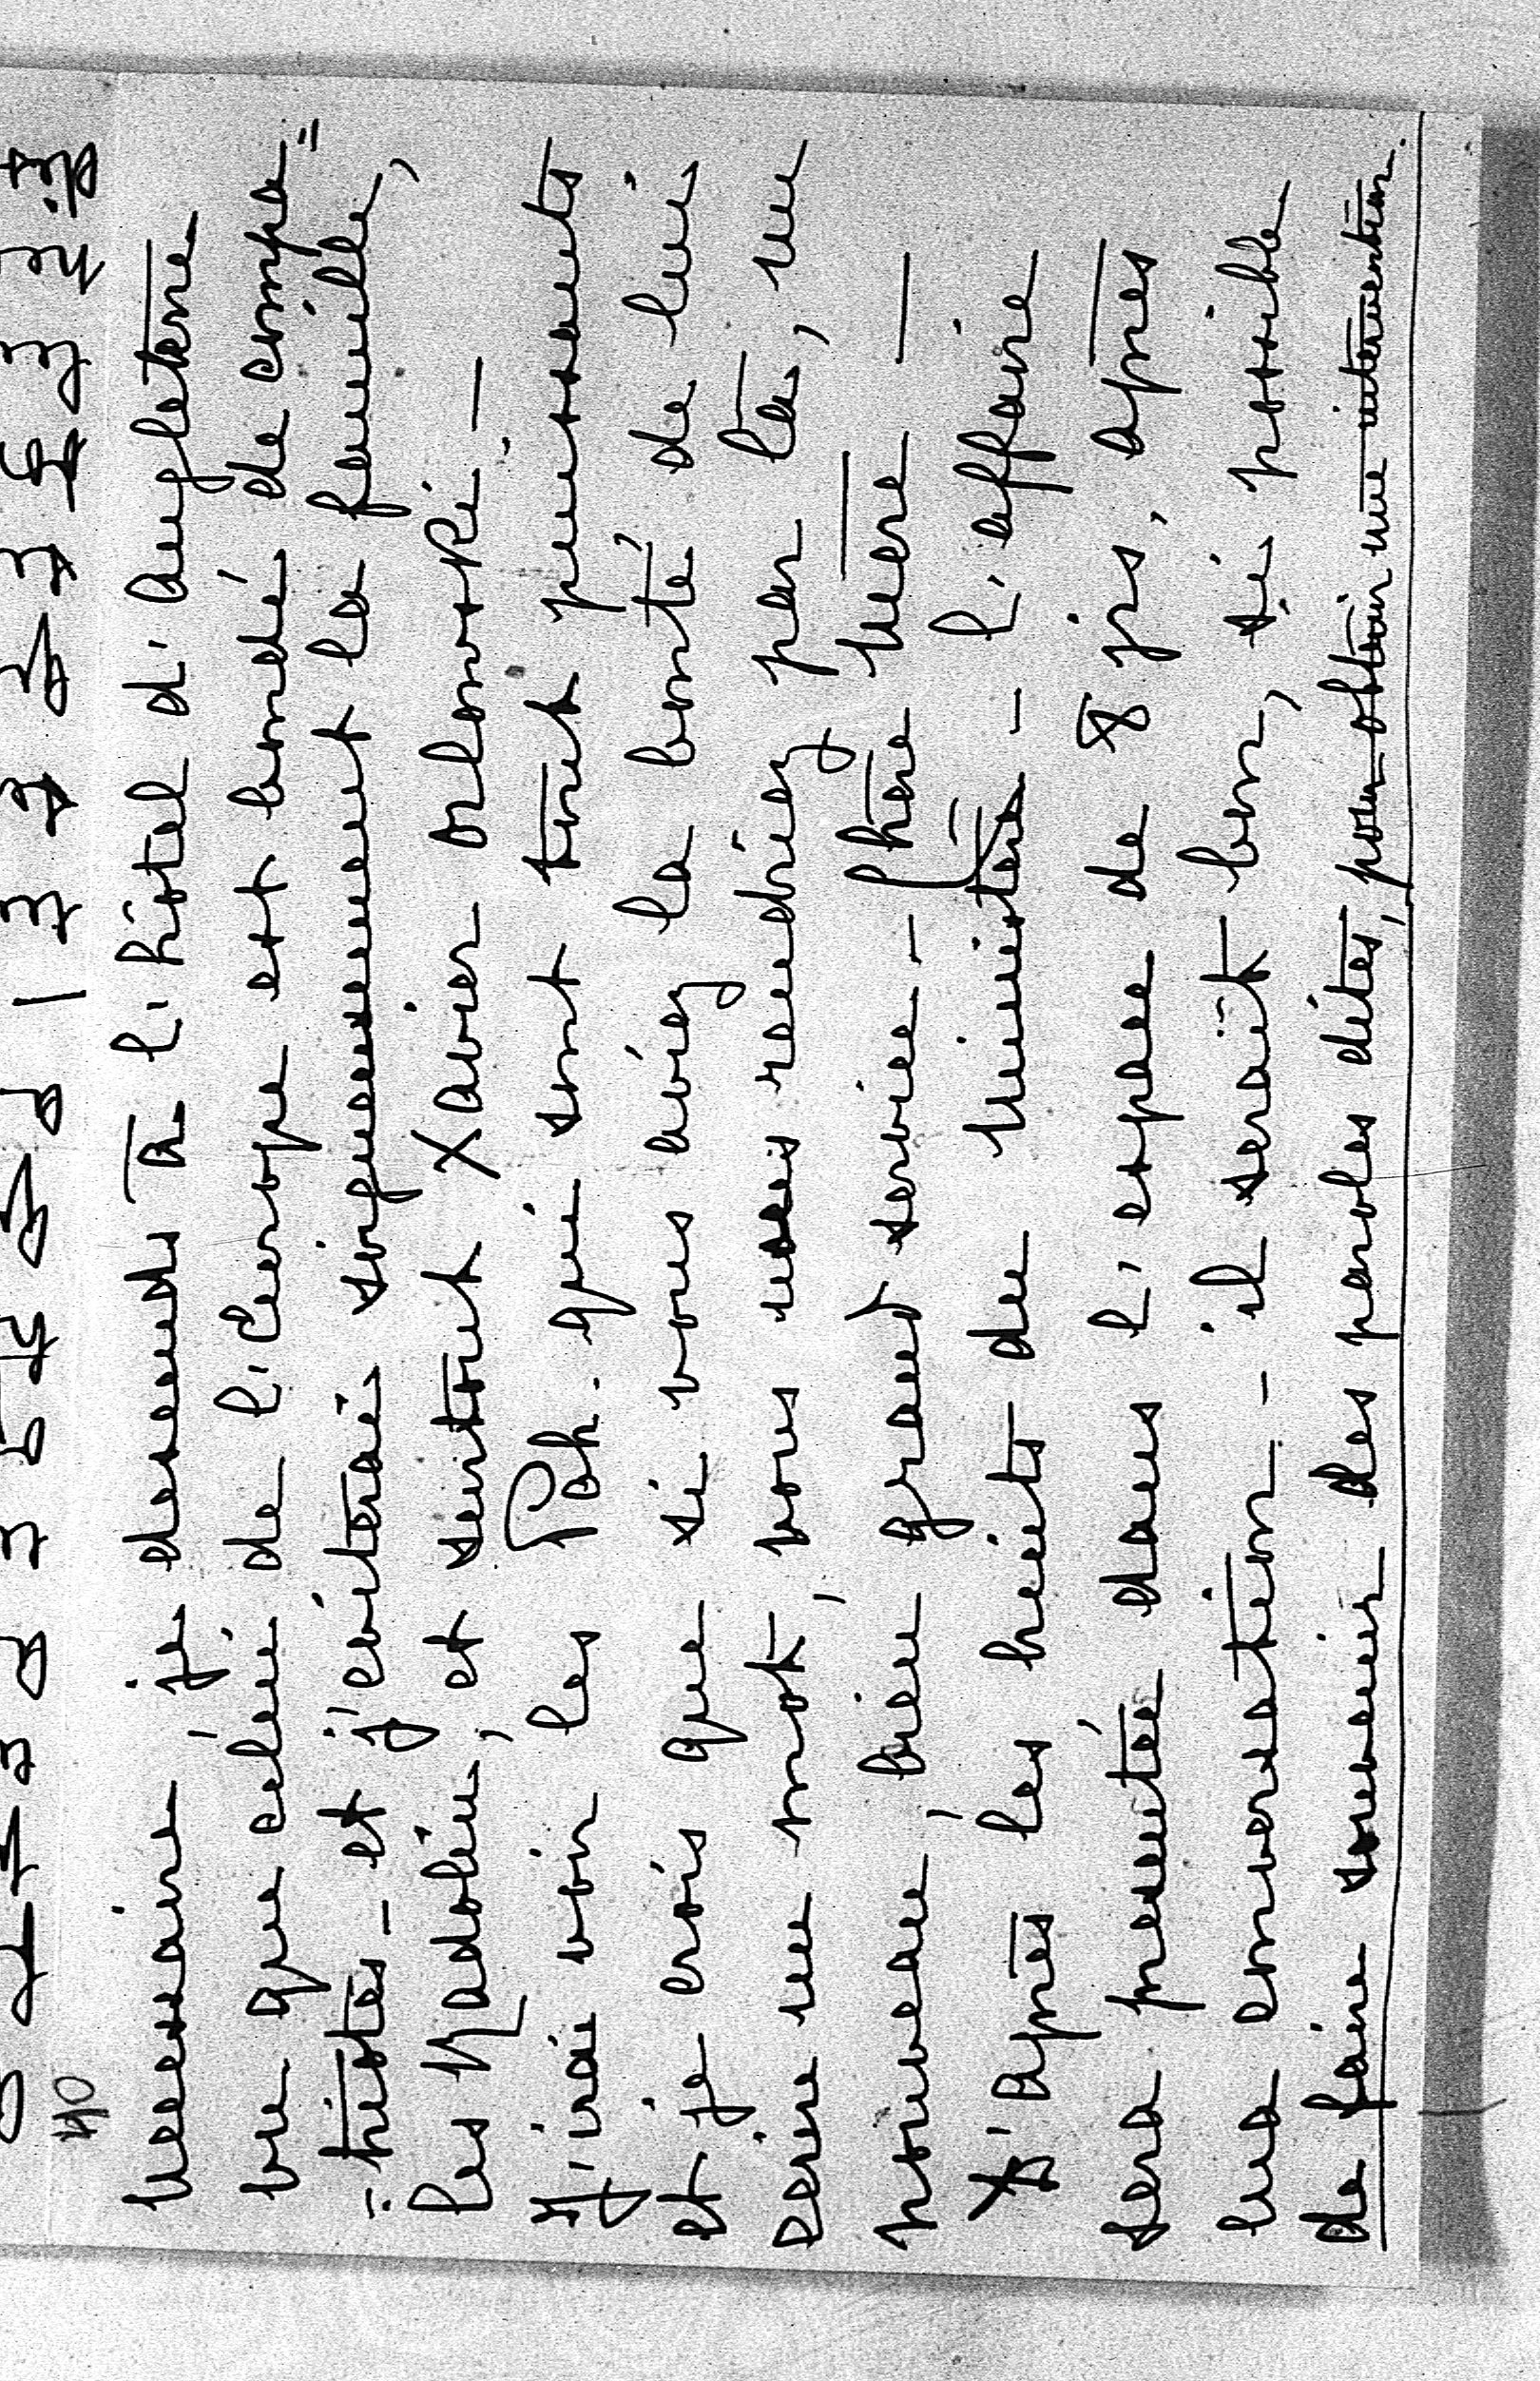 40
nécessaire, je descends à l'hôtel d'Angleterre
vu que celui de l'Europe est bondé de compa=
=triotes – et j'éviterai soigneusement la famille,
les Radolin, et surtout Xavier Orlowski –
J'irai voir les Pot. qui sont tout puissants
et je crois que si vous aviez la bonté de lui
écrire un mot, vous nous rendriez par là, un
nouveau, bien grand service – Chère Mère –
D'après les huits du Ministère – l'affaire
sera présentée dans l'espace de 8 jrs, après
ma conversation – il serait bon, si possible
de faire souvenir des paroles dites, pour obtenir une intervention.